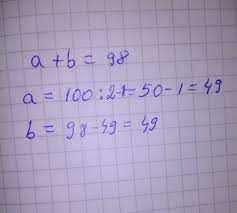 a + b = 98
a = 100 : 2-1= 50 - 1 = 49
b = 98 - 49 = 49